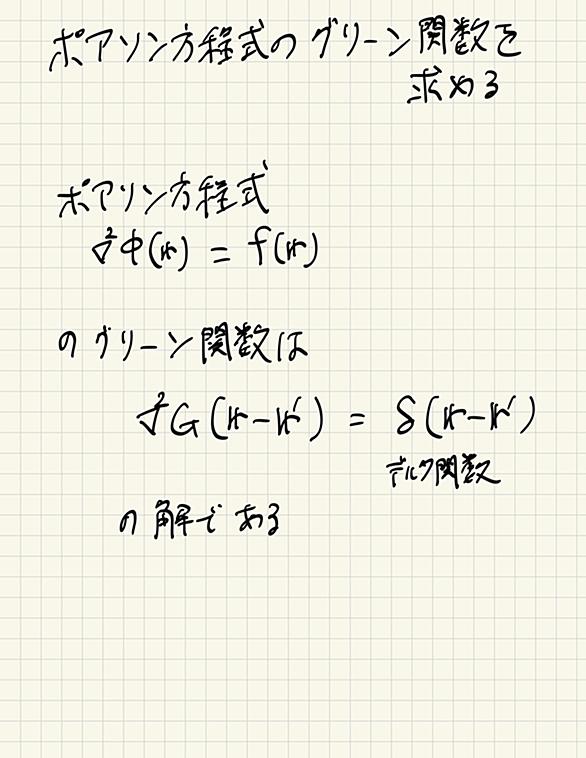 ポアソン方程式のグリーン関数を
求める
ポアソン方程式
∇²Φ(𝕣) = f(𝕣)
のグリーン関数は
∇²G(𝕣-𝕣′) = δ(𝕣-𝕣′)
デルタ関数
の解である